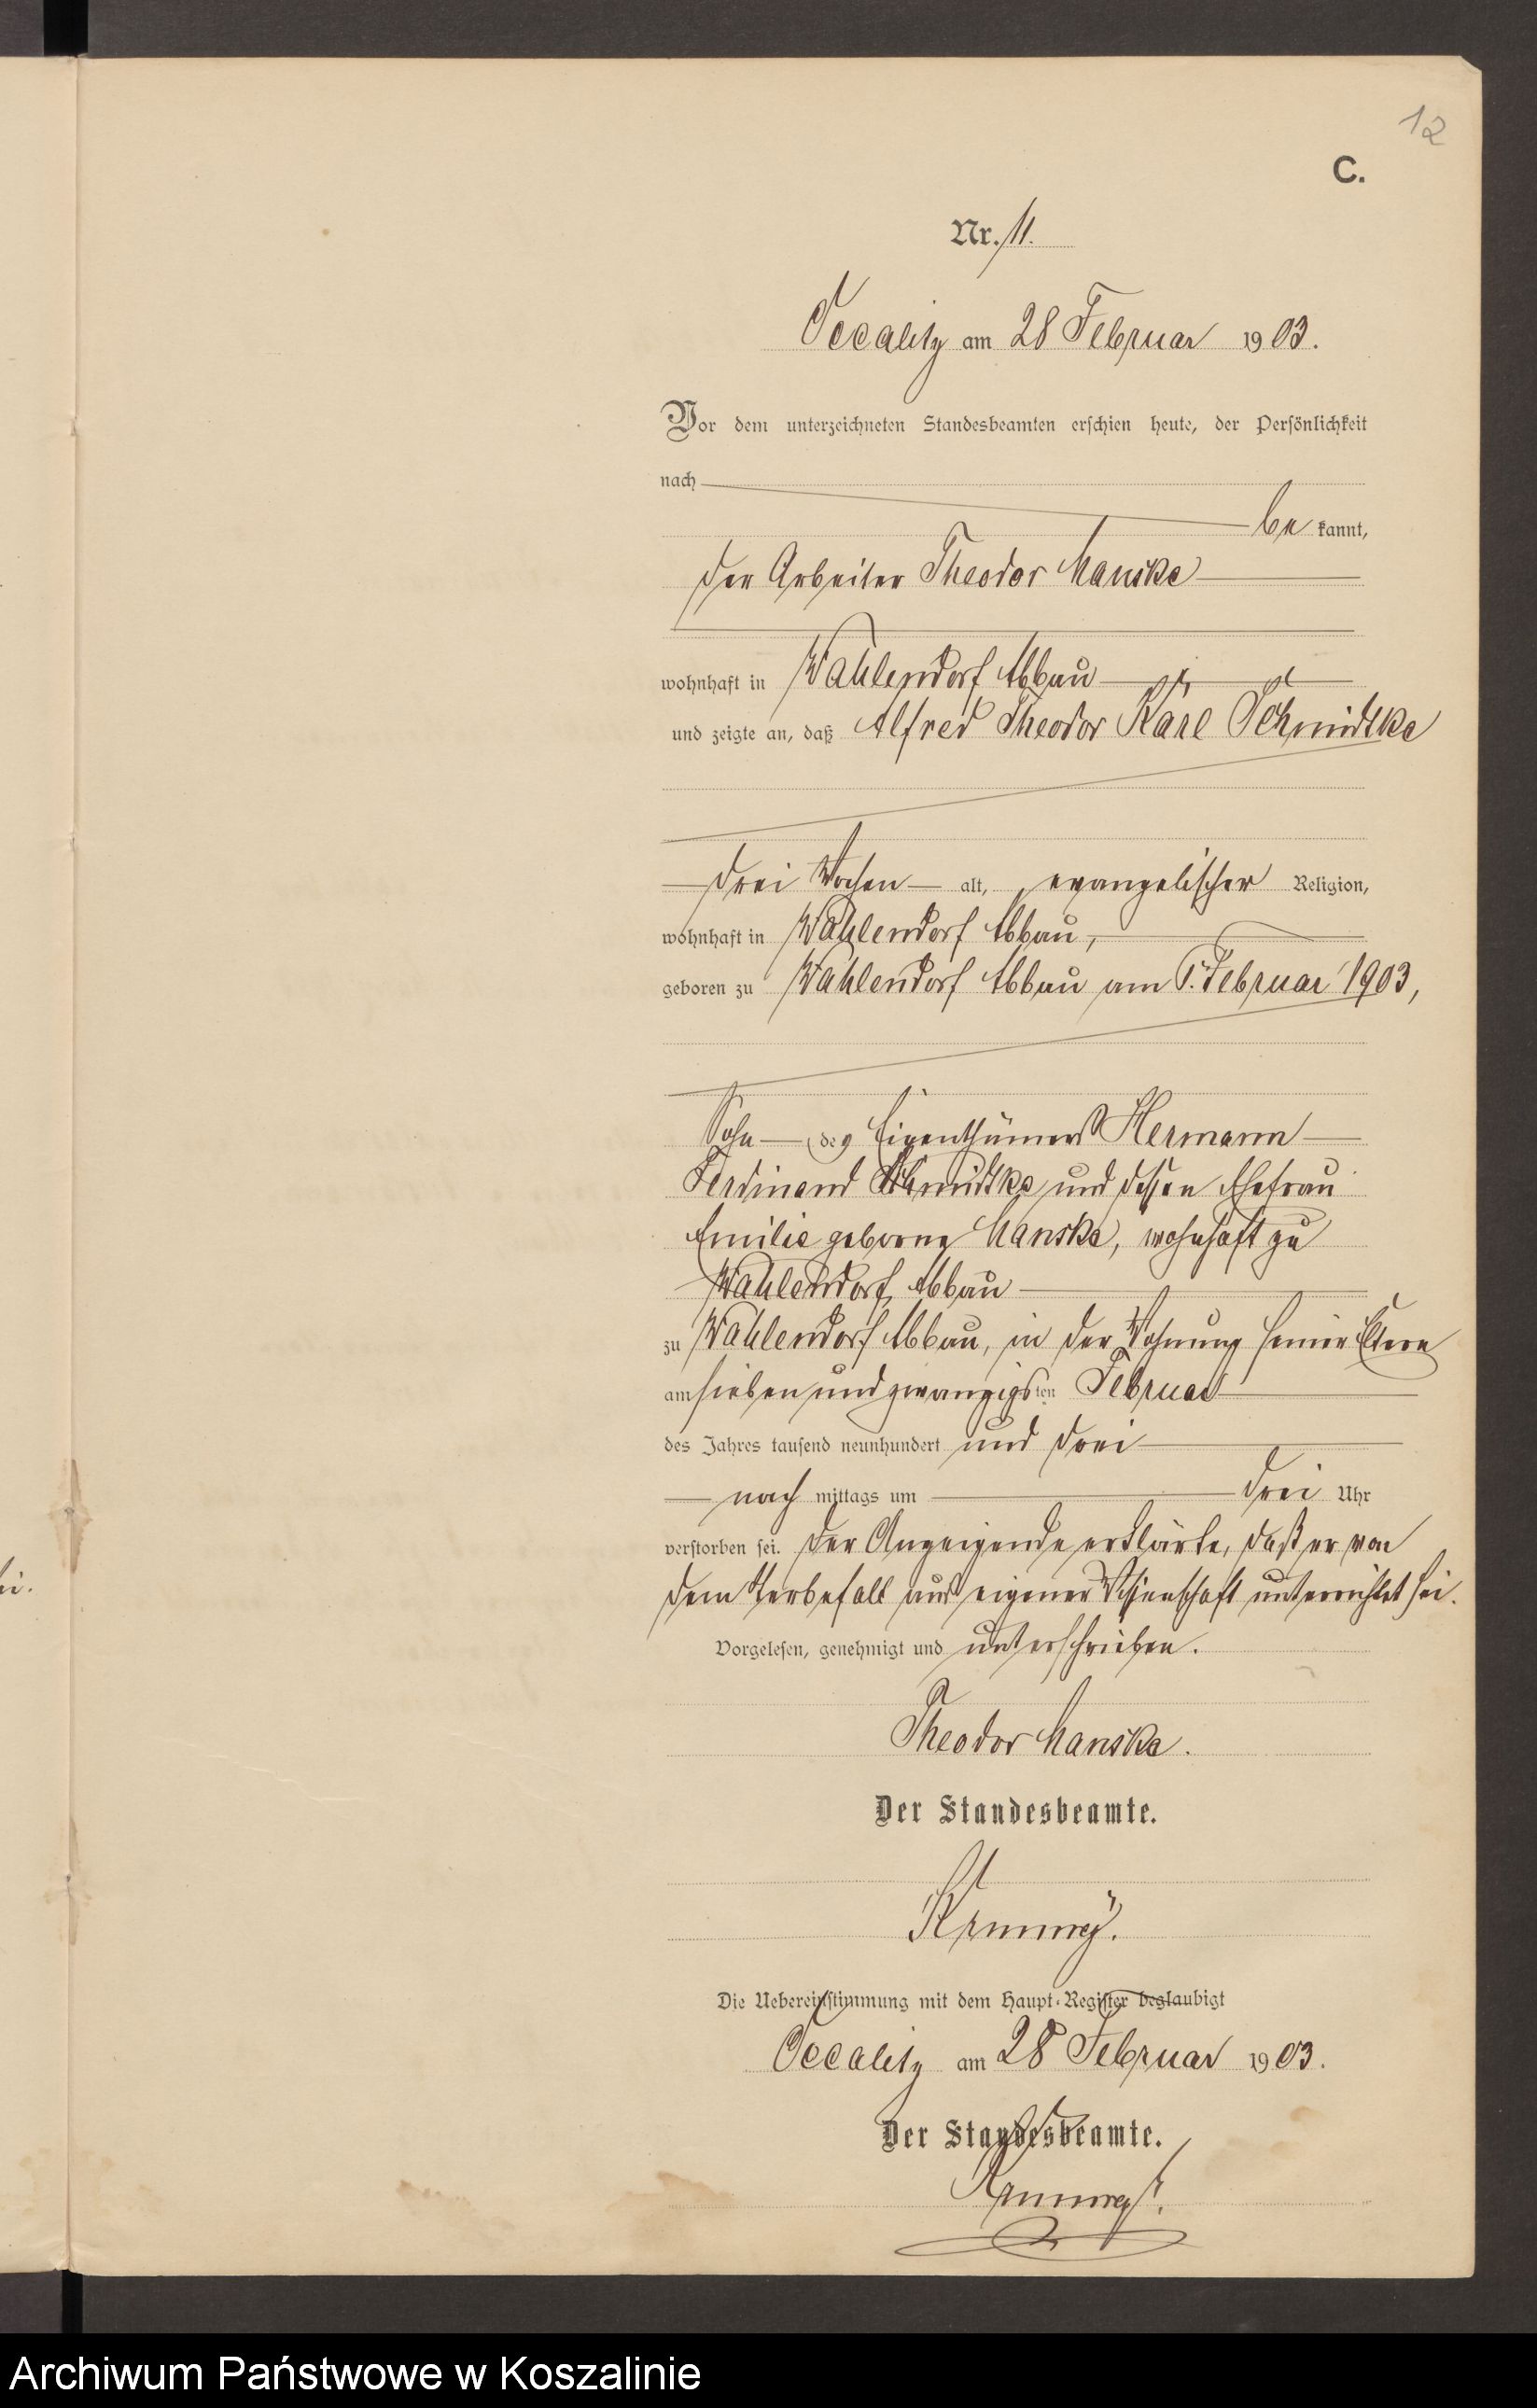 12
C.
Nr. 11.
Occalitz am 28 Februar 1903.
Vor dem unterzeichneten Standesbeamten erschien heute, der Persönlichkeit
nach
be kannt,
der Arbeiter Theodor Manske
wohnhaft in Wahlendorf Abbau
und zeigte an, daß Alfred Theodor Karl Schmidtke
drei Wochen alt, evangelischer Religion,
wohnhaft in Wahlendorf Abbau,
geboren zu Wahlendorf Abbau am Februar 1903,
Sohn des Eigenthümers Hermann
Ferdinand Schmidtke und dessen Ehefrau
Emilie geborne Manske, wohnhaft zu
Wahlendorf Abbau
zu Wahlendorf Abbau, in der Wohnung seiner Eltern
am siebenundzwanzigsten Februar
des Jahres tausend neunhundert und drei
nach mittags um drei Uhr
verstorben sei. Der Anzeigende erklärte, daß er von
dem Sterbefall aus eigener Wissenschaft unterrichtet sei.
Vorgelesen, genehmigt und unterschrieben.
Theodor Manske.
Der Standesbeamte.
Die Uebereinstimmung mit dem Haupt-Register beglaubigt
Occalitz am 28 Februar 1903.
Der Standesbeamte.
ei.
Archiwum Państwowe w Koszalinie